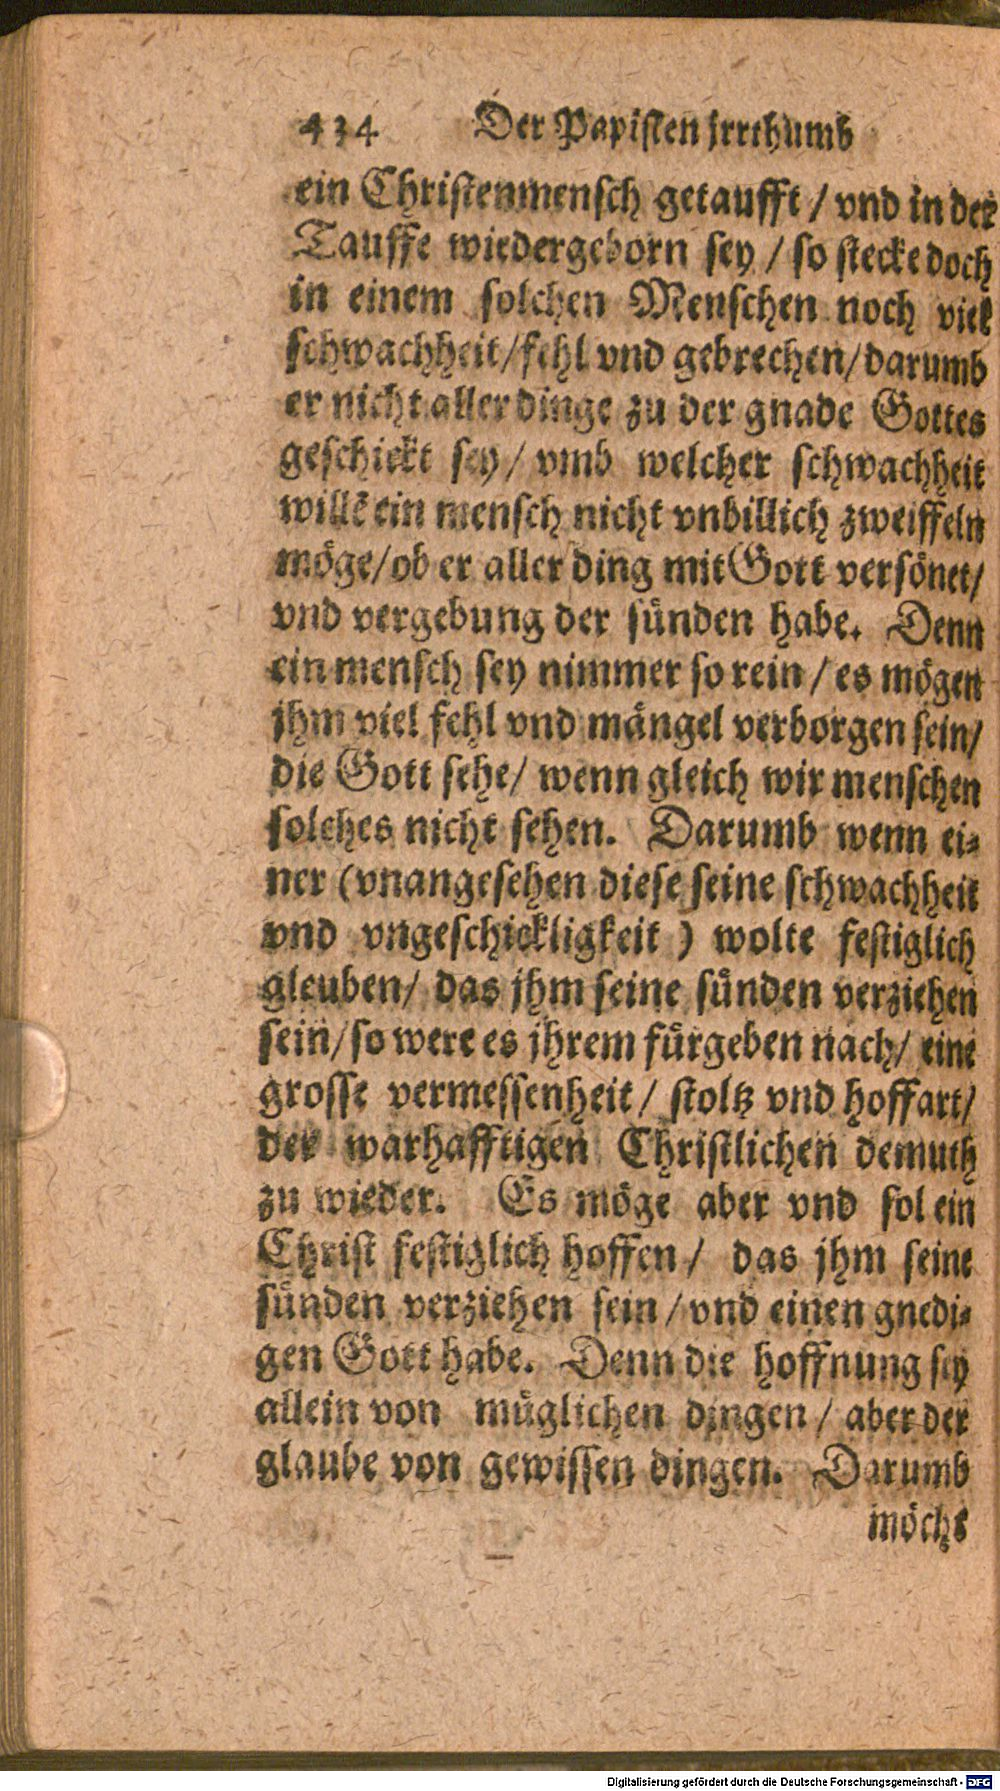 434 Der Papisten jrrthumb
ein Christenmensch getaufft / vnd in der
Tauffe wiedergeborn sey / so stecke doch
in einem solchen Menschen noch viel
schwachheit/fehl vnd gebrechen/darumb
er nicht aller dinge zu der gnade Gottes
geschickt sey / vmb welcher schwachheit
willē ein mensch nicht vnbillich zweiffeln
möge/ob er aller ding mit Gott versönet/
vnd vergebung der sünden habe. Denn
ein mensch sey nimmer so rein / es mögen
jhm viel fehl vnd mängel verborgen sein/
die Gott sehe/ wenn gleich wir menschen
solches nicht sehen. Darumb wenn ei-
ner (vnangesehen diese seine schwachheit
vnd vngeschickligkeit ) wolte festiglich
gleuben/ das jhm seine sünden verziehen
sein/so were es jhrem fürgeben nach/ eine
grosse vermessenheit / stoltz vnd hoffart/
der warhafftigen Christlichen demuth
zu wieder. Es möge aber vnd sol ein
Christ festiglich hoffen / das jhm seine
sünden verziehen sein / vnd einen gnedi-
gen Gott habe. Denn die hoffnung sey
allein von müglichen dingen / aber der
glaube von gewissen dingen. Darumb
möcht
Digitalisierung gefördert durch die Deutsche Forschungsgemeinschaft - DFG